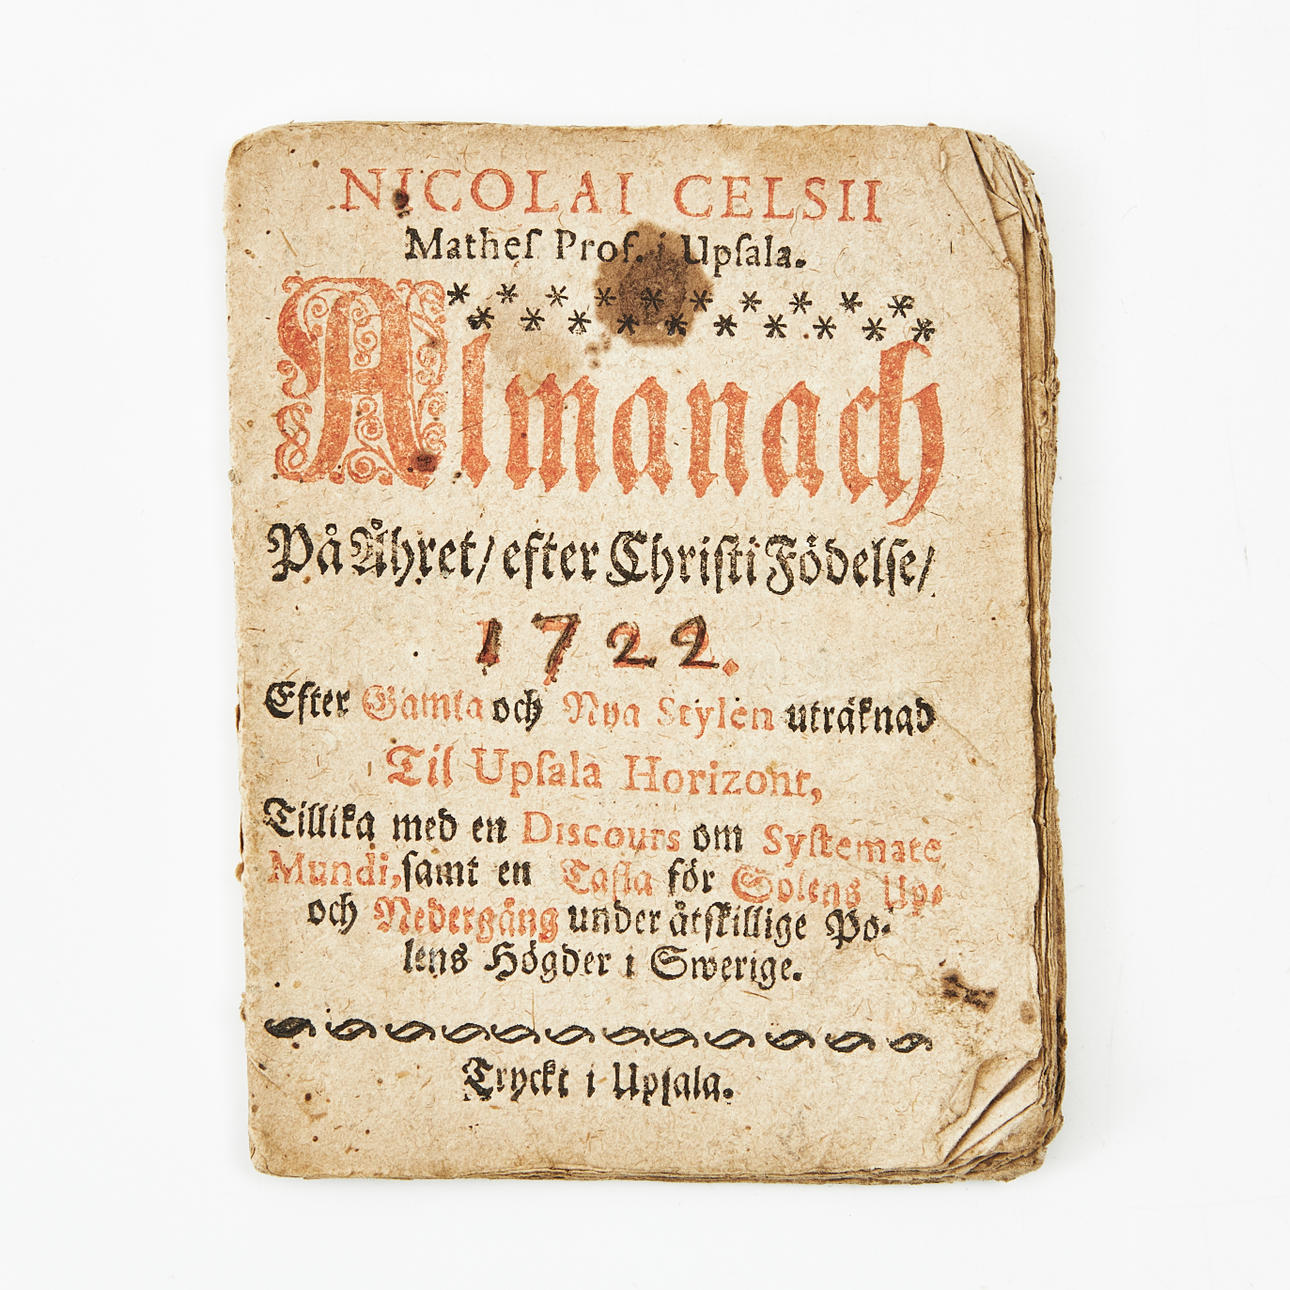 NICOLAI CELSII
Matheſ Prof. i Upſala.
Almanach
På Åhret/ efter Chriſti Födelſe/
1722.
Efter Gamla och Nya Stylen uträknad
Til Upſala Horizont,
Tillika med en Discours om Syſtemate
Mundi, ſamt en Tafla för Solens Up-
och Nedergång under åtſkillige Po-
lens Högder i Swerige.
Tryckt i Upſala.